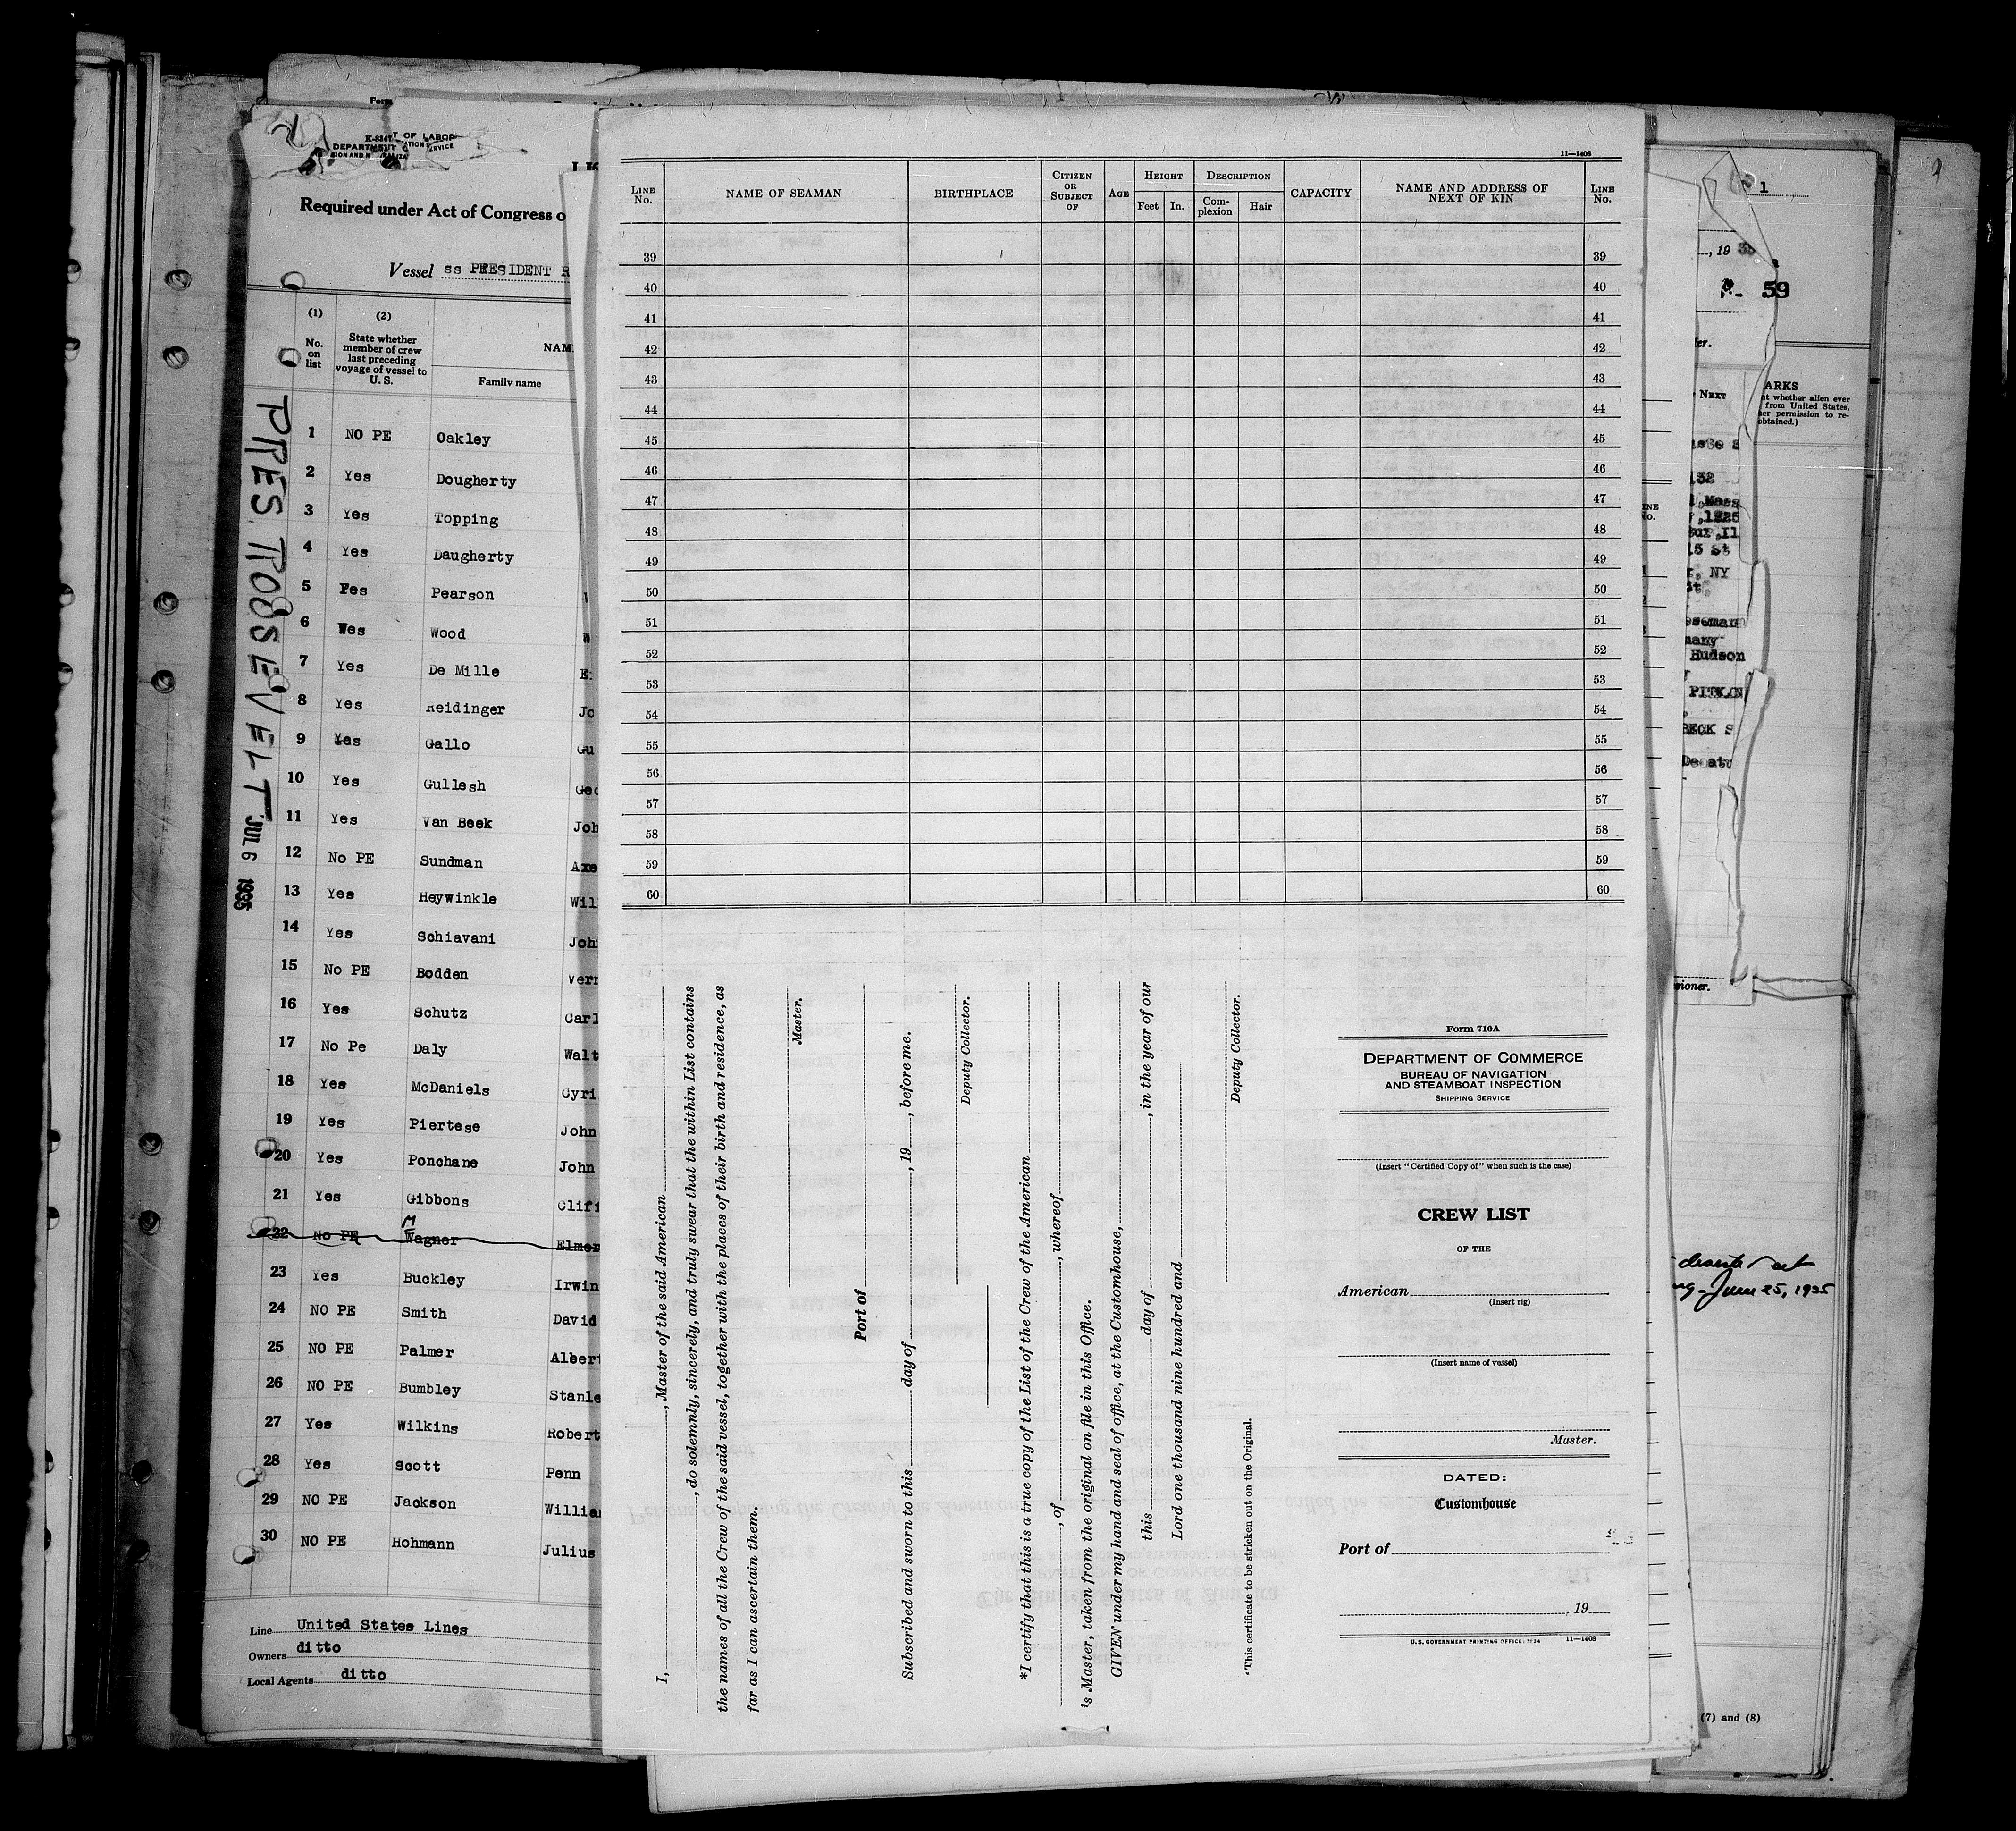 Form
K-8347
T OF LABOR
DEPARTMENT
Required under Act of Congress o
Vessel ss PRESIDENT R
(1) (2)
No. on list
State whether member of crew last preceding voyage of vessel to U. S.
NAM
Family name
1 NO PE Oakley
2 Yes Dougherty
3 Yes Topping
4 Yes Daugherty
5 Yes Pearson
6 Yes Wood
7 Yes De Mille
8 Yes Reidinger Jo
9 Yes Gallo Gu
10 Yes Gullesh Geo
11 Yes Van Beek Joh
12 No PE Sundman Axe
13 Yes Heywinkle Wil
14 Yes Schiavani Joh
15 No PE Bodden Vern
16 Yes Schutz Carl
17 No Pe Daly Walt
18 Yes McDaniels Cyri
19 Yes Piertese John
20 Yes Ponchane John
21 Yes Gibbons Cliff
22 No PE Wagner Elmer
M
23 Yes Buckley Irwin
24 NO PE Smith David
25 NO PE Palmer Albert
26 NO PE Bumbley Stanle
27 Yes Wilkins Robert
28 Yes Scott Penn
29 NO PE Jackson Willia
30 NO PE Hohmann Julius
Line United States Lines
Owners ditto
Local Agents ditto
PRES. ROOSEVELT JUL 6 1935
11—1408
LINE No.
NAME OF SEAMAN
BIRTHPLACE
CITIZEN OR SUBJECT OF
AGE
HEIGHT
Feet In.
DESCRIPTION
Com-plexion Hair
CAPACITY
NAME AND ADDRESS OF NEXT OF KIN
LINE No.
39 39
40 40
41 41
42 42
43 43
44 44
45 45
46 46
47 47
48 48
49 49
50 50
51 51
52 52
53 53
54 54
55 55
56 56
57 57
58 58
59 59
60 60
I, , Master of the said American
, do solemnly, sincerely, and truly swear that the within List contains
the names of all the Crew of the said vessel, together with the places of their birth and residence, as
far as I can ascertain them.
Master.
Port of
Subscribed and sworn to this day of , 19 , before me.
Deputy Collector.
*I certify that this is a true copy of the List of the Crew of the American
, of , whereof
is Master, taken from the original on file in this Office.
GIVEN under my hand and seal of office, at the Customhouse,
this day of , in the year of our
Lord one thousand nine hundred and
Deputy Collector.
*This certificate to be stricken out on the Original.
Form 710A
DEPARTMENT OF COMMERCE
BUREAU OF NAVIGATION
AND STEAMBOAT INSPECTION
SHIPPING SERVICE
(Insert "Certified Copy of" when such is the case)
CREW LIST
OF THE
American
(Insert rig)
(Insert name of vessel)
Master.
DATED:
Customhouse
Port of
, 19
U.S. GOVERNMENT PRINTING OFFICE: 1934 11—1408
1
, 19 35
59
NEXT
ARKS
at whether alien ever
from United States,
her permission to re-
obtained.)
132
Mass
NY
Hudson
PITKIN
BECK S
sioner.
June 25, 1935
(7) and (8)